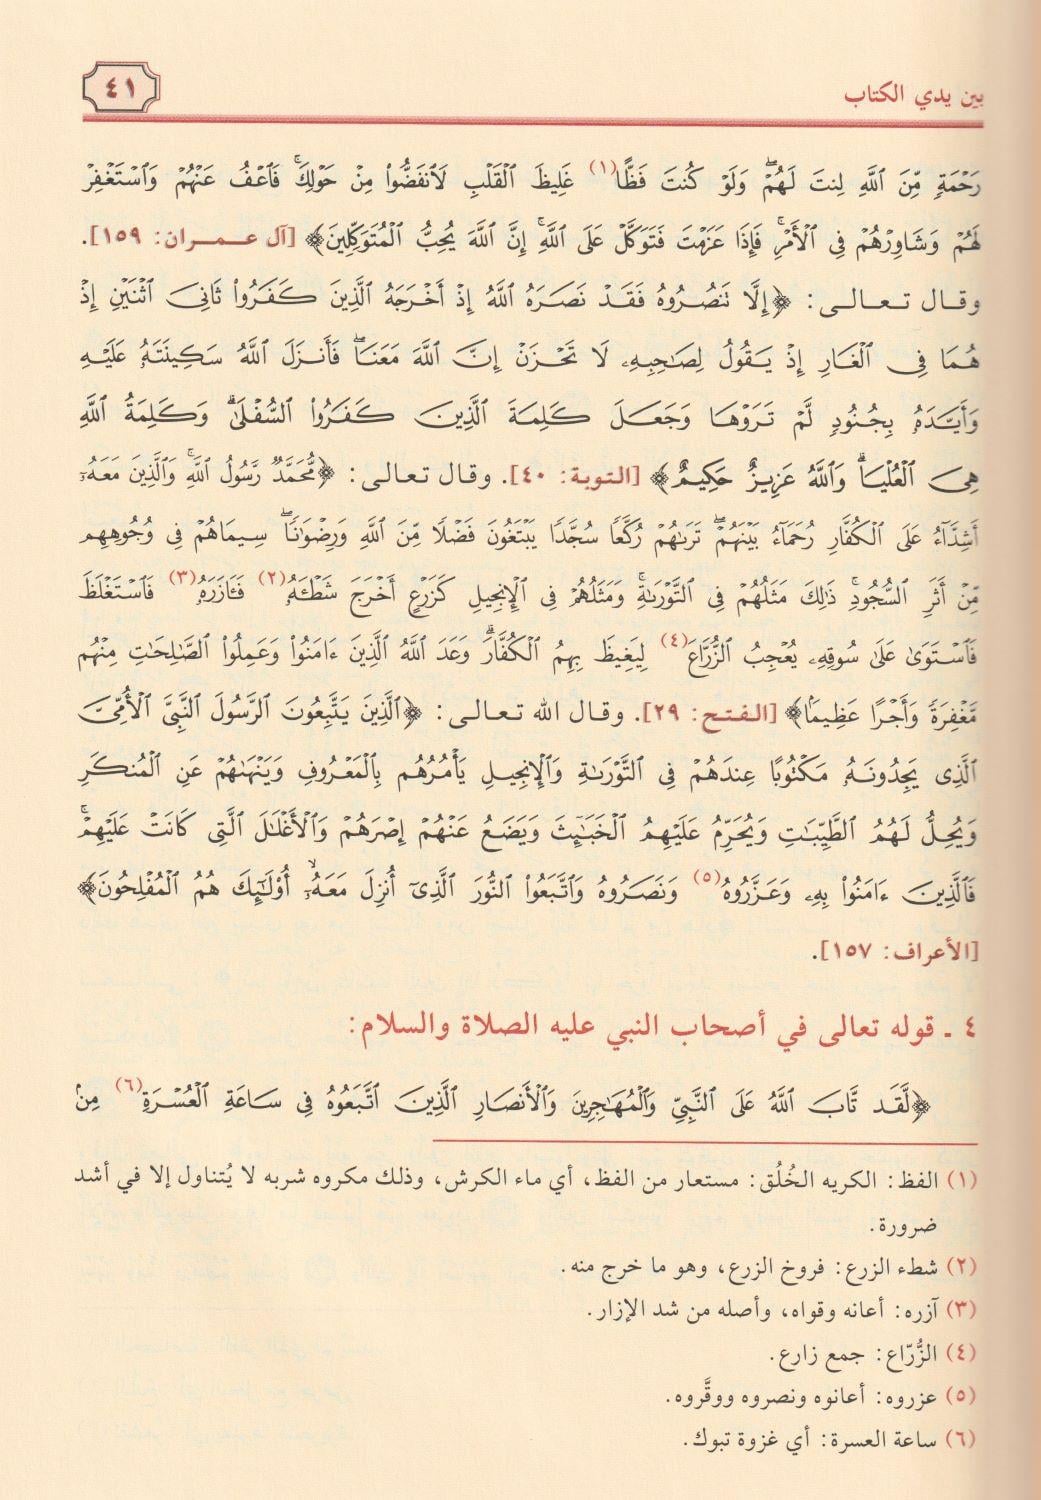 بين يدي الكتاب
٤١
رَحْمَةٍ مِّنَ ٱللَّهِ لِنتَ لَهُمْ ۖ وَلَوْ كُنتَ فَظًّا(١) غَلِيظَ ٱلْقَلْبِ لَٱنفَضُّوا۟ مِنْ حَوْلِكَ ۖ فَٱعْفُ عَنْهُمْ وَٱسْتَغْفِرْ
لَهُمْ وَشَاوِرْهُمْ فِى ٱلْأَمْرِ ۖ فَإِذَا عَزَمْتَ فَتَوَكَّلْ عَلَى ٱللَّهِ ۚ إِنَّ ٱللَّهَ يُحِبُّ ٱلْمُتَوَكِّلِينَ﴾ [آل عـمـران: ١٥٩].
وقـال تـعـالـى: ﴿إِلَّا تَنصُرُوهُ فَقَدْ نَصَرَهُ ٱللَّهُ إِذْ أَخْرَجَهُ ٱلَّذِينَ كَفَرُوا۟ ثَانِىَ ٱثْنَيْنِ إِذْ
هُمَا فِى ٱلْغَارِ إِذْ يَقُولُ لِصَـٰحِبِهِۦ لَا تَحْزَنْ إِنَّ ٱللَّهَ مَعَنَا ۖ فَأَنزَلَ ٱللَّهُ سَكِينَتَهُۥ عَلَيْهِ
وَأَيَّدَهُۥ بِجُنُودٍ لَّمْ تَرَوْهَا وَجَعَلَ كَلِمَةَ ٱلَّذِينَ كَفَرُوا۟ ٱلسُّفْلَىٰ ۗ وَكَلِمَةُ ٱللَّهِ
هِىَ ٱلْعُلْيَا ۗ وَٱللَّهُ عَزِيزٌ حَكِيمٌ﴾ [التوبة: ٤٠]. وقـال تـعـالـى: ﴿مُّحَمَّدٌ رَّسُولُ ٱللَّهِ ۚ وَٱلَّذِينَ مَعَهُۥٓ
أَشِدَّآءُ عَلَى ٱلْكُفَّارِ رُحَمَآءُ بَيْنَهُمْ ۖ تَرَىٰهُمْ رُكَّعًا سُجَّدًا يَبْتَغُونَ فَضْلًا مِّنَ ٱللَّهِ وَرِضْوَٰنًا ۖ سِيمَاهُمْ فِى وُجُوهِهِم
مِّنْ أَثَرِ ٱلسُّجُودِ ۚ ذَٰلِكَ مَثَلُهُمْ فِى ٱلتَّوْرَىٰةِ ۚ وَمَثَلُهُمْ فِى ٱلْإِنجِيلِ كَزَرْعٍ أَخْرَجَ شَطْـَٔهُۥ(٢) فَـَٔازَرَهُۥ(٣) فَٱسْتَغْلَظَ
فَٱسْتَوَىٰ عَلَىٰ سُوقِهِۦ يُعْجِبُ ٱلزُّرَّاعَ(٤) لِيَغِيظَ بِهِمُ ٱلْكُفَّارَ ۗ وَعَدَ ٱللَّهُ ٱلَّذِينَ ءَامَنُوا۟ وَعَمِلُوا۟ ٱلصَّـٰلِحَـٰتِ مِنْهُم
مَّغْفِرَةً وَأَجْرًا عَظِيمًۢا﴾ [الـفـتـح: ٢٩]. وقـال الله تـعـالـى: ﴿ٱلَّذِينَ يَتَّبِعُونَ ٱلرَّسُولَ ٱلنَّبِىَّ ٱلْأُمِّىَّ
ٱلَّذِى يَجِدُونَهُۥ مَكْتُوبًا عِندَهُمْ فِى ٱلتَّوْرَىٰةِ وَٱلْإِنجِيلِ يَأْمُرُهُم بِٱلْمَعْرُوفِ وَيَنْهَىٰهُمْ عَنِ ٱلْمُنكَرِ
وَيُحِلُّ لَهُمُ ٱلطَّيِّبَـٰتِ وَيُحَرِّمُ عَلَيْهِمُ ٱلْخَبَـٰٓئِثَ وَيَضَعُ عَنْهُمْ إِصْرَهُمْ وَٱلْأَغْلَـٰلَ ٱلَّتِى كَانَتْ عَلَيْهِمْ ۚ
فَٱلَّذِينَ ءَامَنُوا۟ بِهِۦ وَعَزَّرُوهُ(٥) وَنَصَرُوهُ وَٱتَّبَعُوا۟ ٱلنُّورَ ٱلَّذِىٓ أُنزِلَ مَعَهُۥٓ ۙ أُو۟لَـٰٓئِكَ هُمُ ٱلْمُفْلِحُونَ﴾
[الأعراف: ١٥٧].
٤ ـ قوله تعالى في أصحاب النبي عليه الصلاة والسلام:
﴿لَّقَد تَّابَ ٱللَّهُ عَلَى ٱلنَّبِىِّ وَٱلْمُهَـٰجِرِينَ وَٱلْأَنصَارِ ٱلَّذِينَ ٱتَّبَعُوهُ فِى سَاعَةِ ٱلْعُسْرَةِ(٦) مِنۢ
(١) الفظ: الكريه الخُلُق: مستعار من الفظ، أي ماء الكرش، وذلك مكروه شربه لا يُتناول إلا في أشد
ضرورة.
(٢) شطء الزرع: فروخ الزرع، وهو ما خرج منه.
(٣) آزره: أعانه وقواه، وأصله من شد الإزار.
(٤) الزُّرّاع: جمع زارع.
(٥) عزروه: أعانوه ونصروه ووقَّروه.
(٦) ساعة العسرة: أي غزوة تبوك.